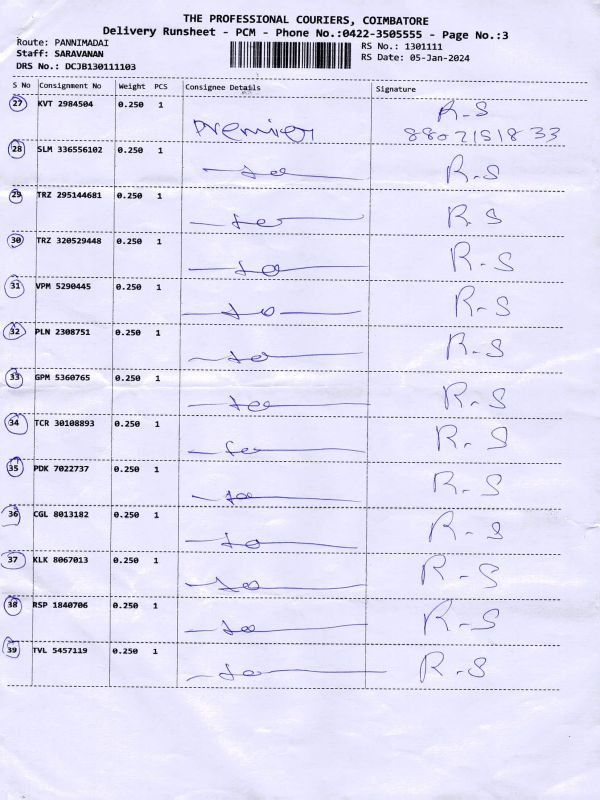 THE PROFESSIONAL COURIERS, COIMBATORE
Delivery Runsheet - PCM - Phone No.:0422-3505555 - Page No.:3
Route: PANNIMADAI
RS No.: 1301111
Staff: SARAVANAN
RS Date: 05-Jan-2024
DRS No.: DCJB130111103
S No Consignment No Weight PCS Consignee Details Signature
27 KVT 2984504 0.250 1 Premier R-S
8807151833
28 SLM 336556102 0.250 1 R-S
29 TRZ 295144681 0.250 1 R-S
30 TRZ 320529448 0.250 1 R-S
31 VPM 5290445 0.250 1 R-S
32 PLN 2308751 0.250 1 R-S
33 GPM 5360765 0.250 1 R-S
34 TCR 30108893 0.250 1 R-S
35 PDK 7022737 0.250 1 R-S
36 CGL 8013182 0.250 1 R-S
37 KLK 8067013 0.250 1 R-S
38 RSP 1840706 0.250 1 R-S
39 TVL 5457119 0.250 1 R-S